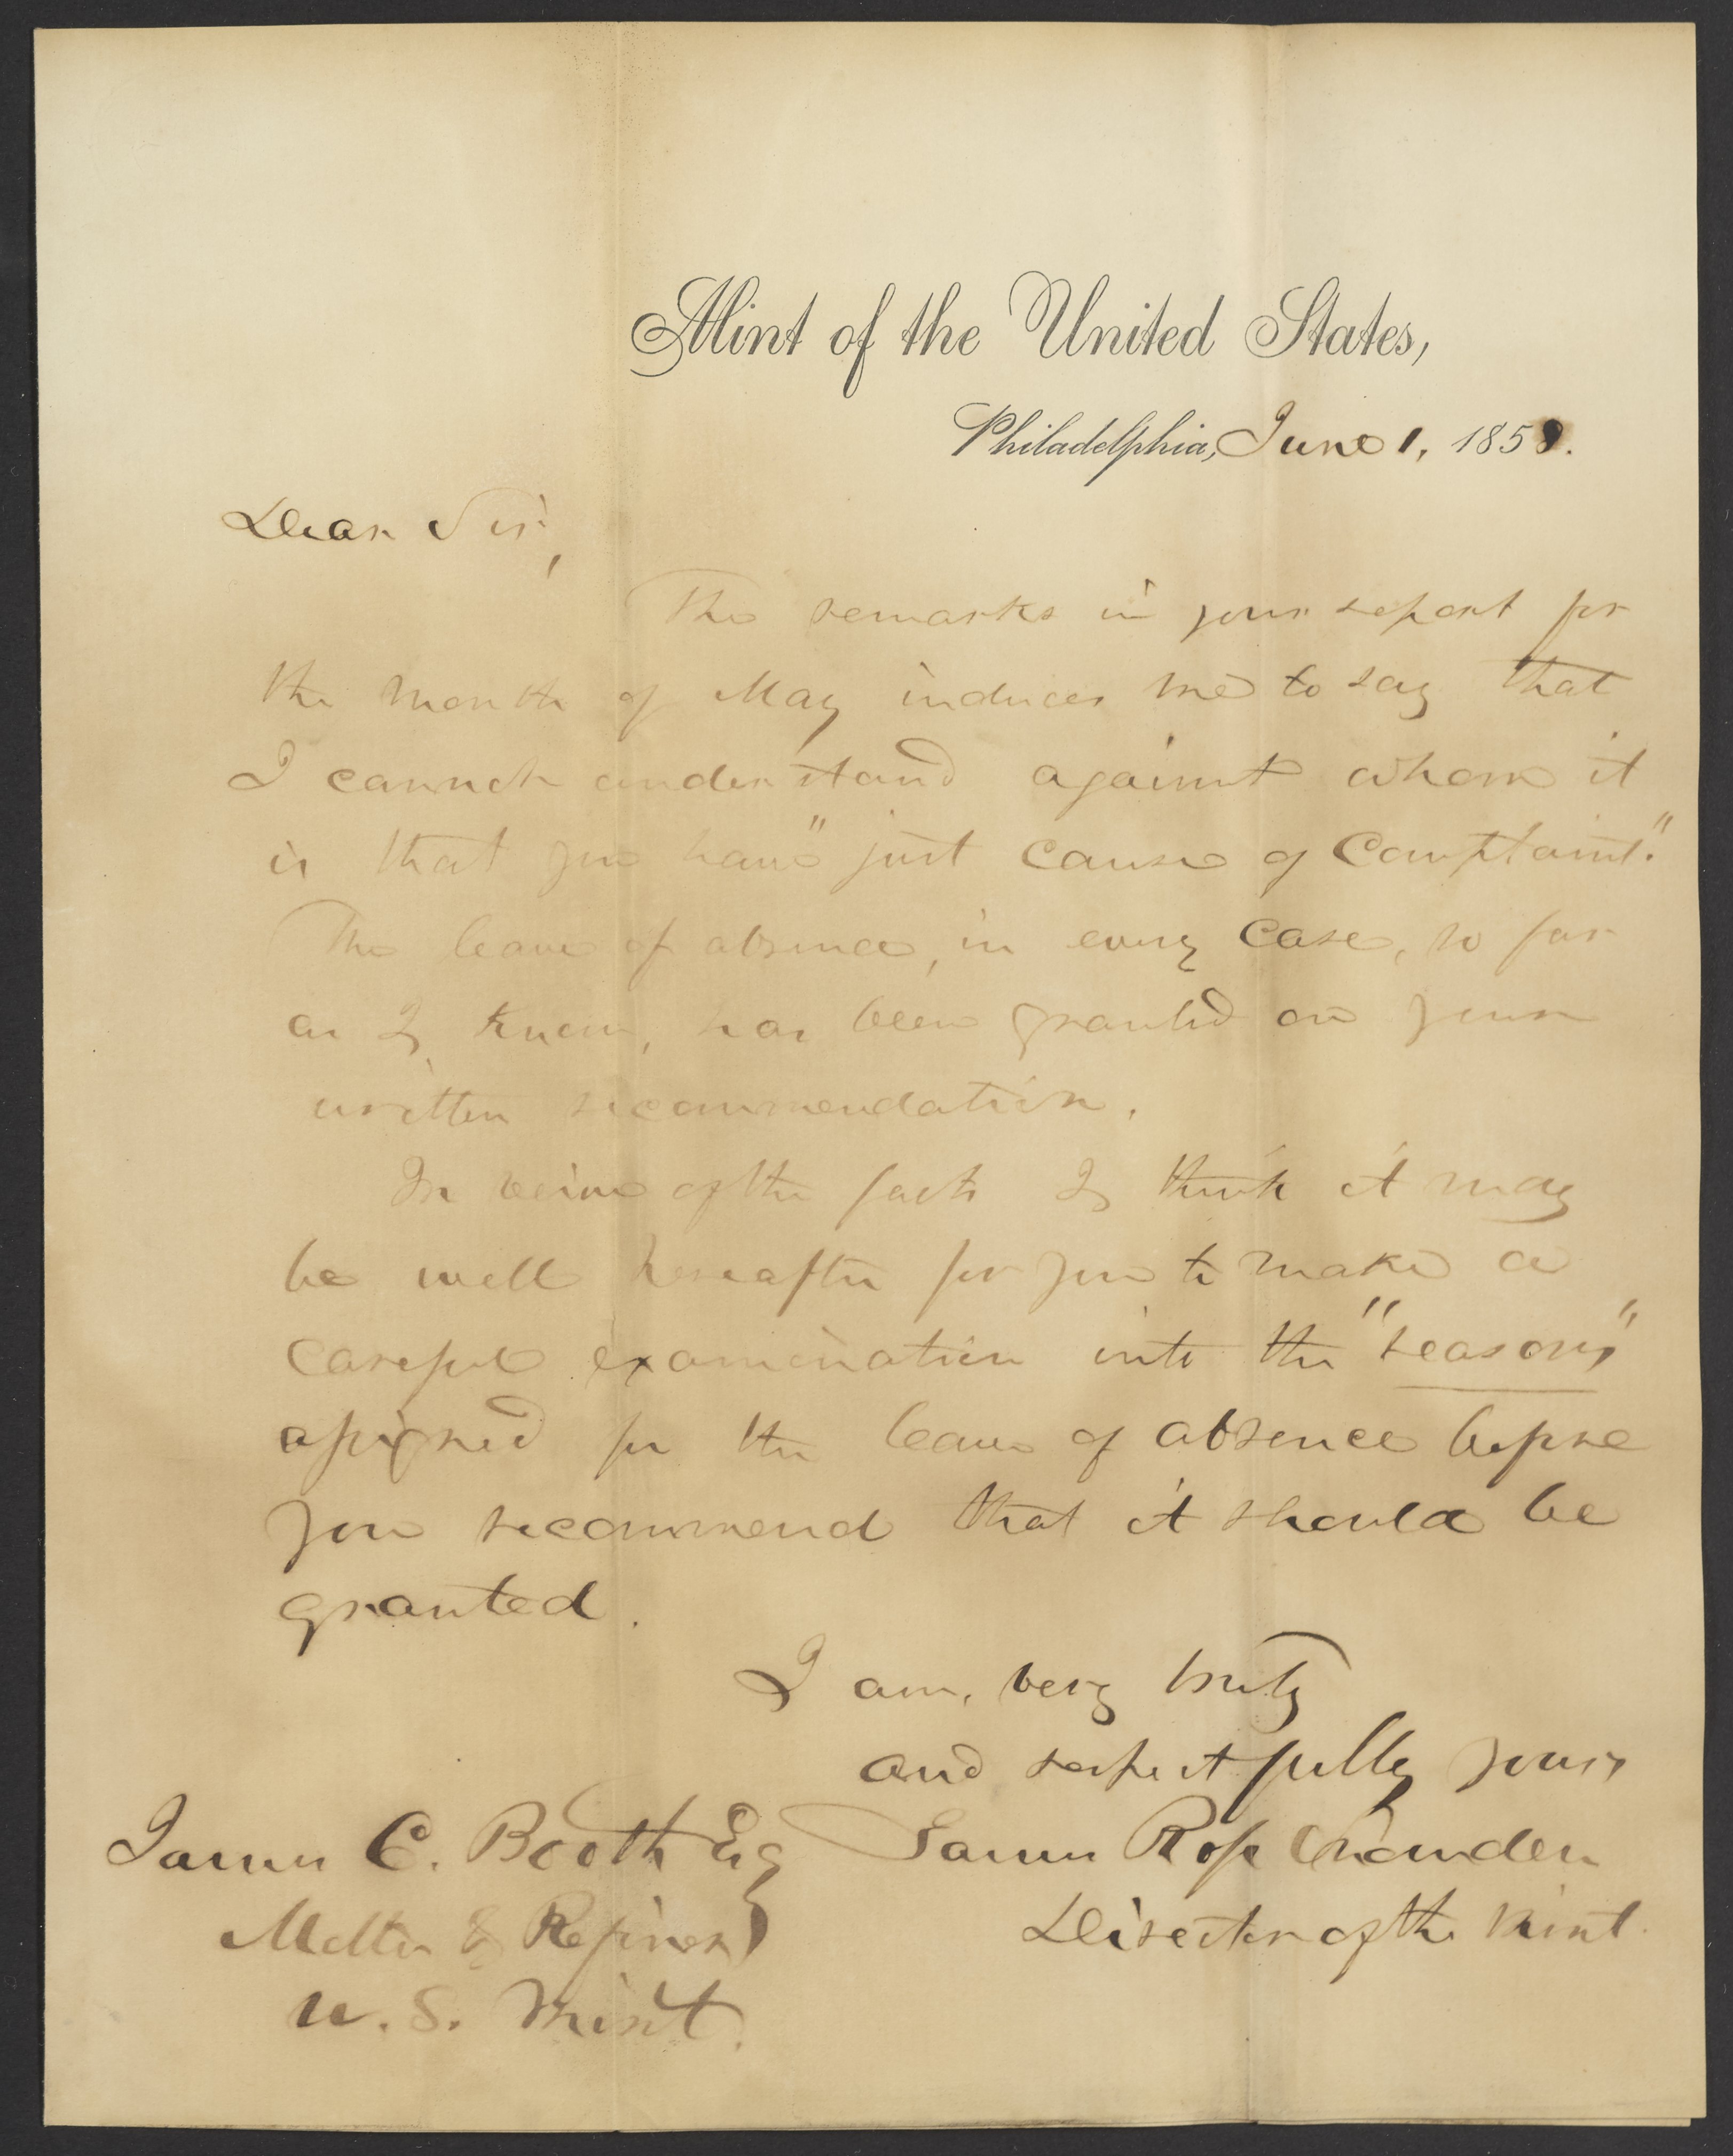 Mint of the United States,
Philadelphia, June 1, 1858.
Dear Sir,
The remarks in your report for
the month of May induces me to say that
I cannot understand against whom it
is that you have "just cause of Complaint."
The leave of absence, in every case, so far
as I know, has been granted on your
written recommendation.
In view of the facts I think it may
be well hereafter for you to make a
careful examination into the "reasons"
assigned for the leave of absence before
you recommend that it should be
granted.
I am, very truly
and respectfully yours
James Ross Snowden
Director of the Mint.
James C. Booth Esq
Melter & Refiner
U. S. Mint.